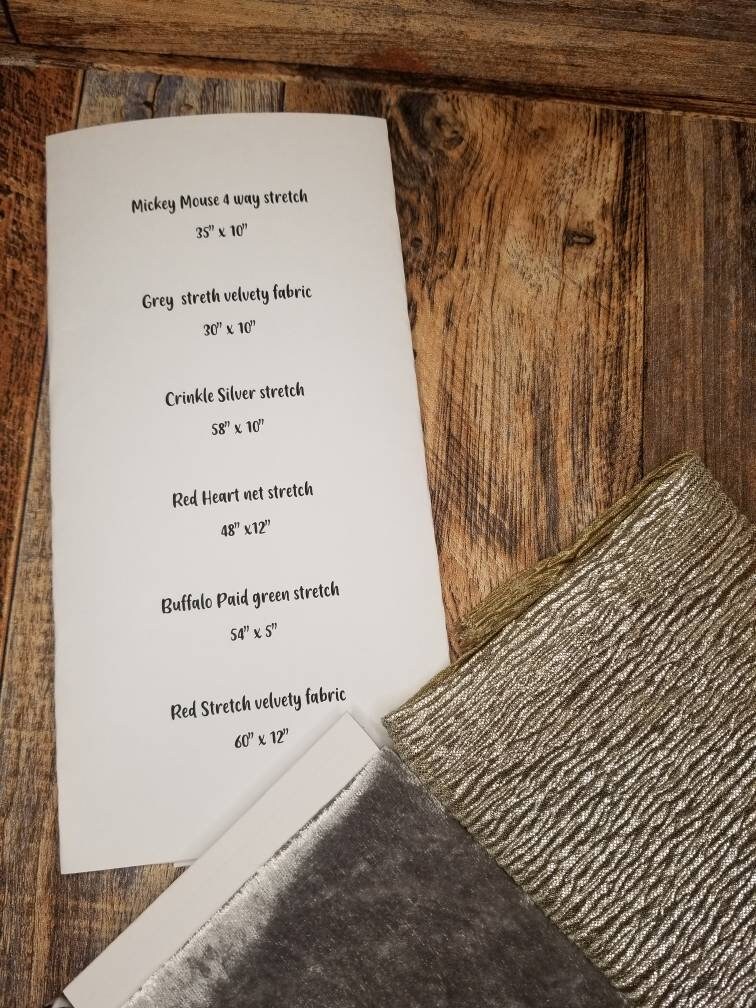 Mickey Mouse 4 way stretch
35" x 10"
Grey streth velvety fabric
30" x 10"
Crinkle Silver stretch
58" x 10"
Red Heart net stretch
48" x12"
Buffalo Paid green stretch
54" x 5"
Red Stretch velvety fabric
60" x 12"